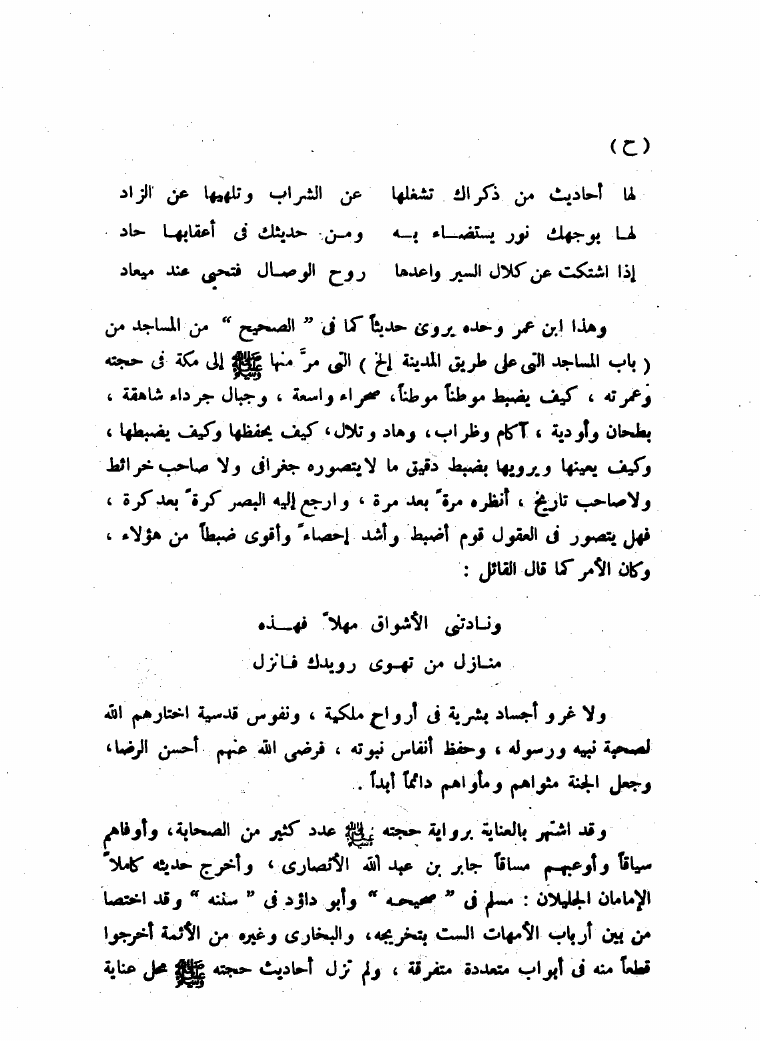 (ح)
لها أحاديث من ذكراك تشغلها عن الشراب وتلهيها عن الزاد
لها بوجهك نور يستضاء به ومن حديثك فى أعقابها حاد
إذا اشتكت عن كلال السير واعدها روح الوصال فتحيى عند ميعاد
وهذا ابن عمر وحده يروى حديثاً كما فى ” الصحيح “ من المساجد من
( باب المساجد التى على طريق المدينة إلخ ) التى مرَّ منها ﷺ إلى مكة فى حجته
وعمرته ، كيف يضبط موطناً موطناً، صحراء واسعة ، وجبال جرداء شاهقة ،
بطحان وأودية ، آكام وظراب، وهاد وتلال، كيف يحفظها وكيف يضبطها ،
وكيف يعينها ويرويها بضبط دقيق ما لايتصوره جغرافى ولا صاحب خرائط
ولاصاحب تاريخ ، أنظره مرةً بعد مرة ، وارجع إليه البصر كرةً بعد كرة ،
فهل يتصور فى العقول قوم أضبط وأشد إحصاءً وأقوى ضبطاً من هؤلاء ،
وكان الأمر كما قال القائل :
ونادتنى الأشواق مهلاً فهذه
منازل من تهوى رويدك فانزل
ولا غرو أجساد بشرية فى أرواح ملكية ، ونفوس قدسية اختارهم الله
لصحبة نبيه ورسوله ، وحفظ أنفاس نبوته ، فرضى الله عنهم أحسن الرضا،
وجعل الجنة مثواهم ومأواهم دائماً أبداً .
وقد اشتهر بالعناية برواية حجته ﷺ عدد كثير من الصحابة، وأوفاهم
سياقاً وأوعبهم مساقاً جابر بن عبد الله الأنصارى ، وأخرج حديثه كاملاً
الإمامان الجليلان : مسلم فى ” صحيحه “ وأبو داؤد فى ” سننه “ وقد اختصا
من بين أرباب الأمهات الست بتخريجه، والبخارى وغيره من الأئمة أخرجوا
قطعاً منه فى أبواب متعددة متفرقة ، ولم تزل أحاديث حجته ﷺ محل عناية